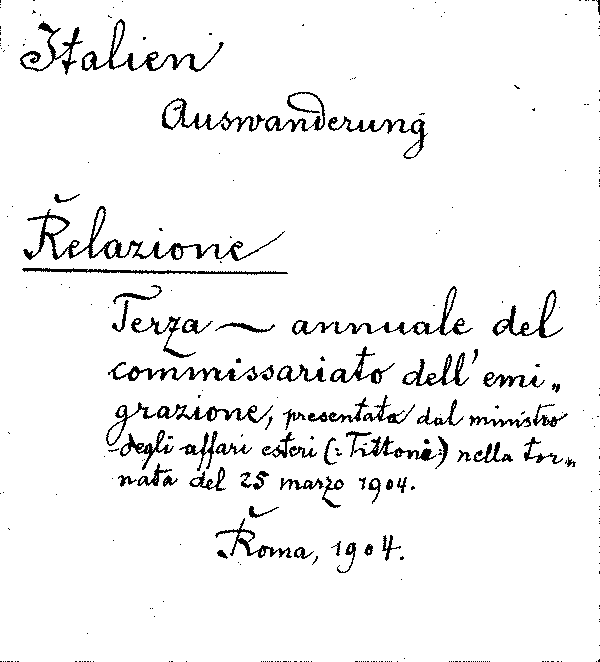 Italien
Auswanderung
Relazione
Terza — annuale del
commissariato dell'emi„
grazione, presentata dal ministro
degli affari esteri (: Tittoni :) nella tor„
nata del 25 marzo 1904.
Roma, 1904.